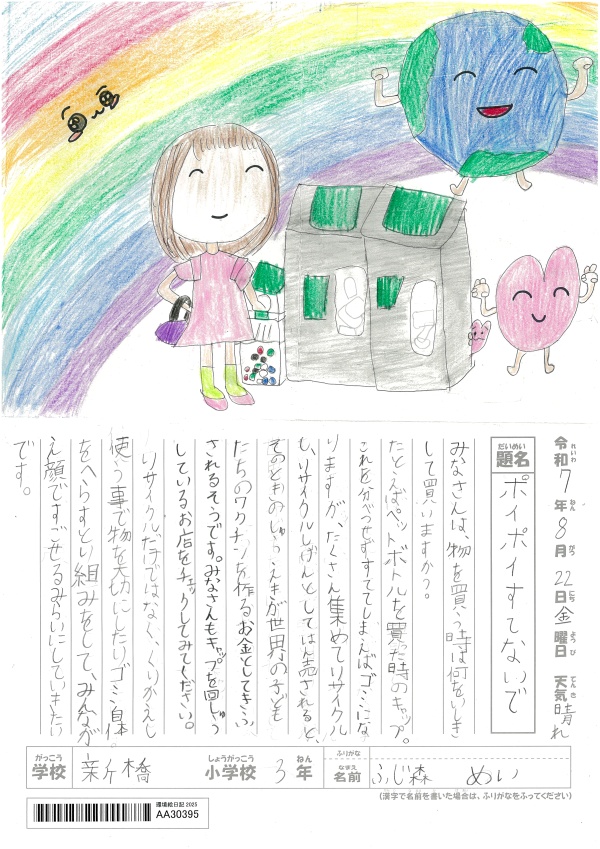 令和7年8月22日金曜日 天気晴れ
れいわ ねん がつ にち ようび てんき
だいめい
題名 ポイポイすてないで
みなさんは、物を買う時は何をいしき
して買いますか?
たとえばペットボトルを買った時のキャップ。
これを分べつせずすててしまえばゴミにな
りますが、たくさん集めてリサイクル
も、リサイクルしげんとしてはん売されると、
そのときのしゅうえきが世界の子ども
たちのワクチンを作るお金としてきふ
されるそうです。みなさんもキャップを回しゅう
しているお店をチェックしてみてください。
リサイクルだけではなく、くりかえし
使う事で物を大切にしたりゴミ自体
をへらすとい組みをして、みんなが
え顔ですごせるみらいにしていきたい
です。
がっこう しょうがっこう ねん ふりがな
学校 新橋 小学校 3年 なまえ 名前 ふじ森 めい
(漢字で名前を書いた場合は、ふりがなをふってください)
環境絵日記 2025
AA30395